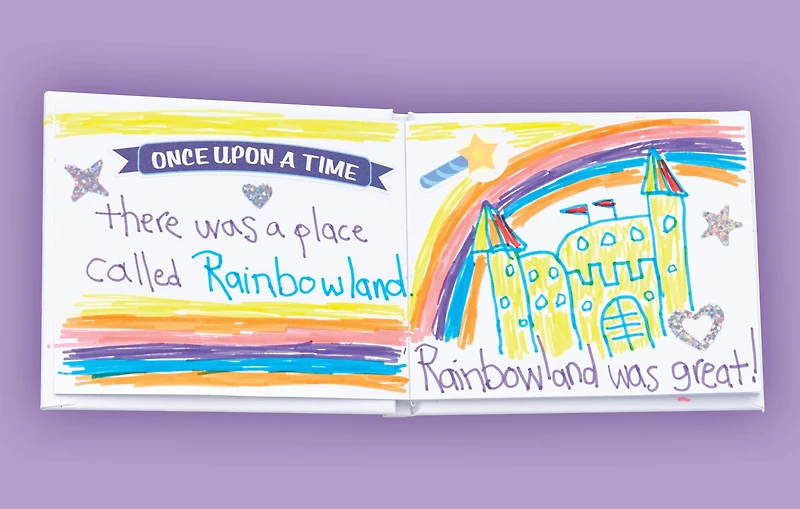 ONCE UPON A TIME
there was a place
called Rainbowland.
Rainbowland was great!